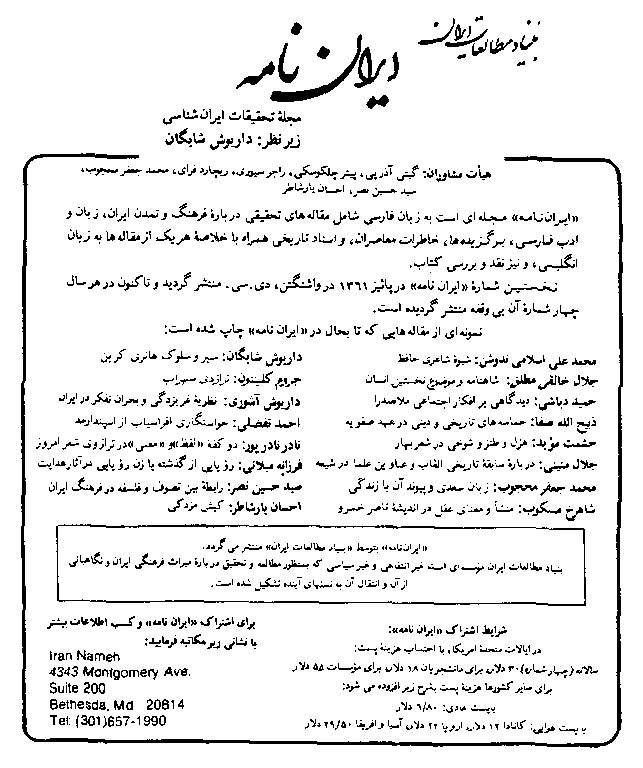 بنیاد مطالعات ایران
ایران نامه
مجلهٔ تحقیقات ایران شناسی
زیر نظر: داریوش شایگان
هیأت مشاوران: گیتی آذرپی، پیتر چلکوسکی، راجر سیوری، ریچارد فرای، محمد جعفر محجوب،
سید حسین نصر، احسان یارشاطر
«ایران‌نامه» مجله ای است به زبان فارسی شامل مقاله های تحقیقی دربارهٔ فرهنگ و تمدن ایران، زبان و
ادب فارسی، برگزیده‌ها، خاطرات معاصران، و اسناد تاریخی همراه با خلاصهٔ هریک از مقاله ها به زبان
انگلیسی، و نیز نقد و بررسی کتاب.
نخستین شمارهٔ «ایران نامه» در پائیز ۱۳۶۱ در واشنگتن، دی.سی. منتشر گردید و تاکنون در هر سال
چهار شمارهٔ آن بی وقفه منتشر گردیده است.
نمونه ای از مقاله هایی که تا بحال در «ایران نامه» چاپ شده است:
محمد علی اسلامی ندوشن: شیوهٔ شاعری حافظ
جلال خالقی مطلق: شاهنامه و موضوع نخستین انسان
حمید دباشی: دیدگاهی بر افکار اجتماعی ملاصدرا
ذبیح الله صفا: حماسه های تاریخی و دینی در عهد صفویه
حشمت مؤید: هزل و طنز و شوخی در شعر بهار
جلال متینی: دربارهٔ سابقهٔ تاریخی القاب و عناوین علما در شیعه
محمد جعفر محجوب: زبان سعدی و پیوند آن با زندگی
شاهرخ مسکوب: منشأ و معنای عقل در اندیشهٔ ناصر خسرو
داریوش شایگان: سیر و سلوک هانری کربن
جروم کلینتون: تراژدی سهراب
داریوش آشوری: نظریهٔ غربزدگی و بحران تفکر در ایران
احمد تفضلی: خواستگاری افراسیاب از اسپندارمد
نادر نادرپور: دو کفهٔ «لفظ» و «معنی» در ترازوی شعر امروز
فرزانه میلانی: رؤیایی از گذشته یا زن رؤیایی در آثار هدایت
سید حسین نصر: رابطهٔ بین تصوف و فلسفه در فرهنگ ایران
احسان یارشاطر: کیش مزدکی
«ایران‌نامه» بتوسط «بنیاد مطالعات ایران» منتشر می گردد.
بنیاد مطالعات ایران مؤسسه‌ای است غیر انتفاعی و غیر سیاسی که بمنظور مطالعه و تحقیق دربارهٔ میراث فرهنگی ایران و نگاهبانی
از آن و انتقال آن به نسلهای آینده تشکیل شده است.
شرایط اشتراک «ایران نامه»:
در ایالات متحدهٔ امریکا، با احتساب هزینهٔ پست:
سالانه (چهار شماره) ۳۰ دلار، برای دانشجویان ۱۸ دلار، برای مؤسسات ۵۵ دلار
برای سایر کشورها هزینهٔ پست بشرح زیر افزوده می شود:
با پست عادی: ۶/۸۰ دلار
با پست هوایی: کانادا ۱۲ دلار، اروپا ۲۲ دلار، آسیا و افریقا ۲۹/۵۰ دلار
برای اشتراک «ایران نامه» و کسب اطلاعات بیشتر
با نشانی زیر مکاتبه فرمایید:
Iran Nameh
4343 Montgomery Ave.
Suite 200
Bethesda, Md 20814
Tel: (301)657-1990